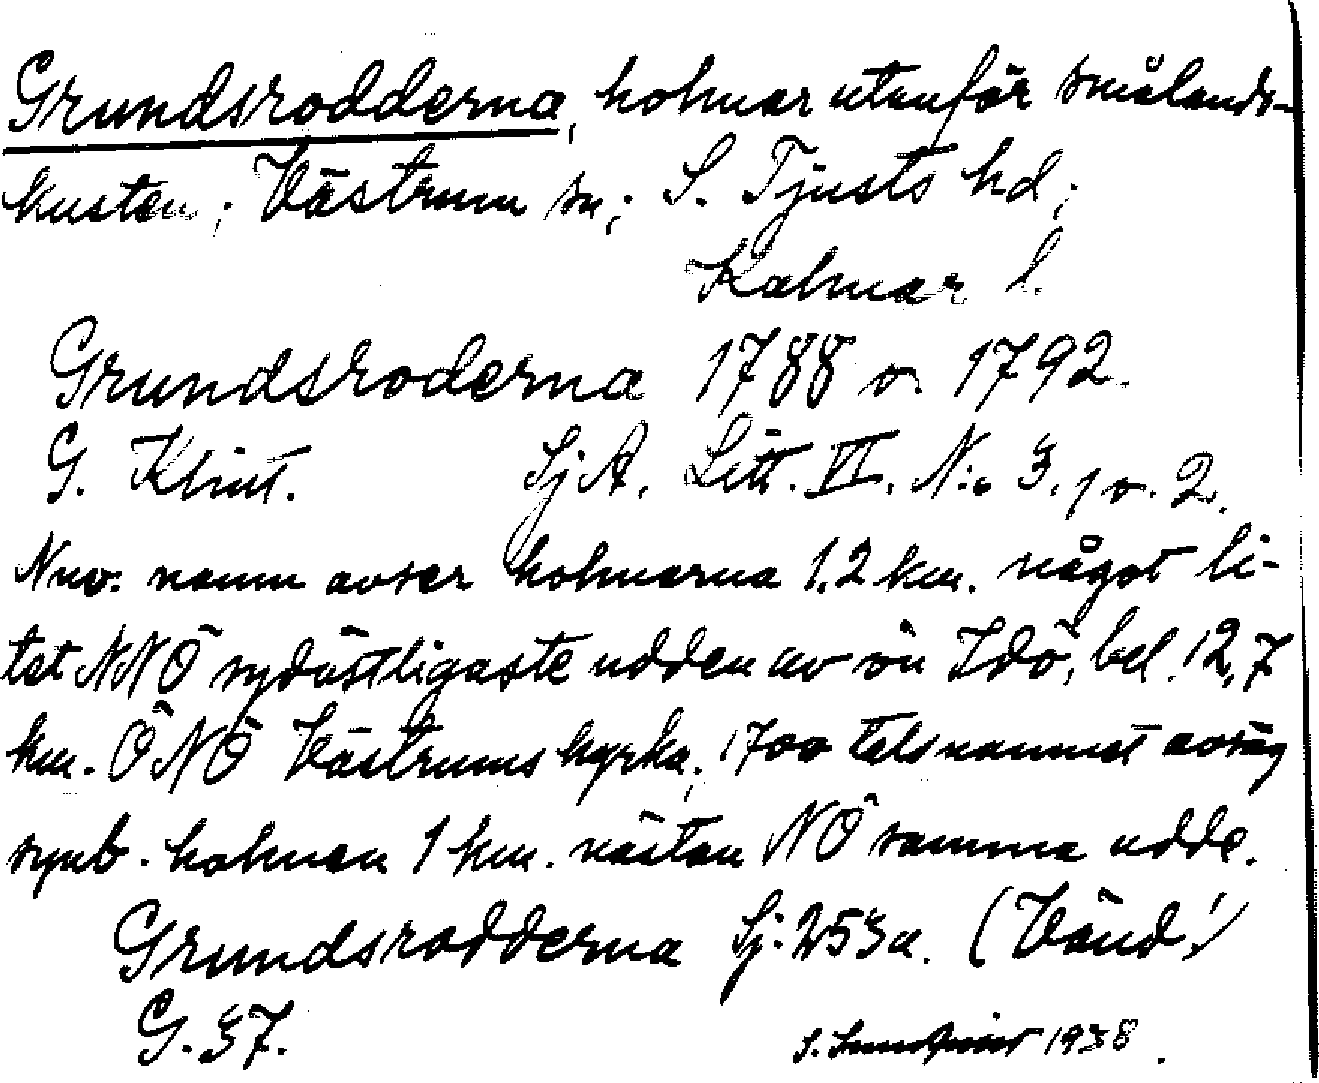 Grundsrodderna, holmar utanför smålands-
kusten; Västrum sn; S. Tjusts hd;
Kalmar l.
Grundsroderna 1788 o. 1792.
G. Klint. SjA. Litt. VI. N:o 3. 1 o. 2.
Nuv. namn avser holmarna 1,2 km. något li-
tet NNÖ sydöstligaste udden av ön Idö, bel. 12,7
km. ÖNÖ Västrums kyrka; 1700 talsnamnet avsåg
synb. holmen 1 km. nästan NÖ samma udde.
Grundsrodderna Sj. 253a. (Vänd!)
G. 37.
S. 1938.